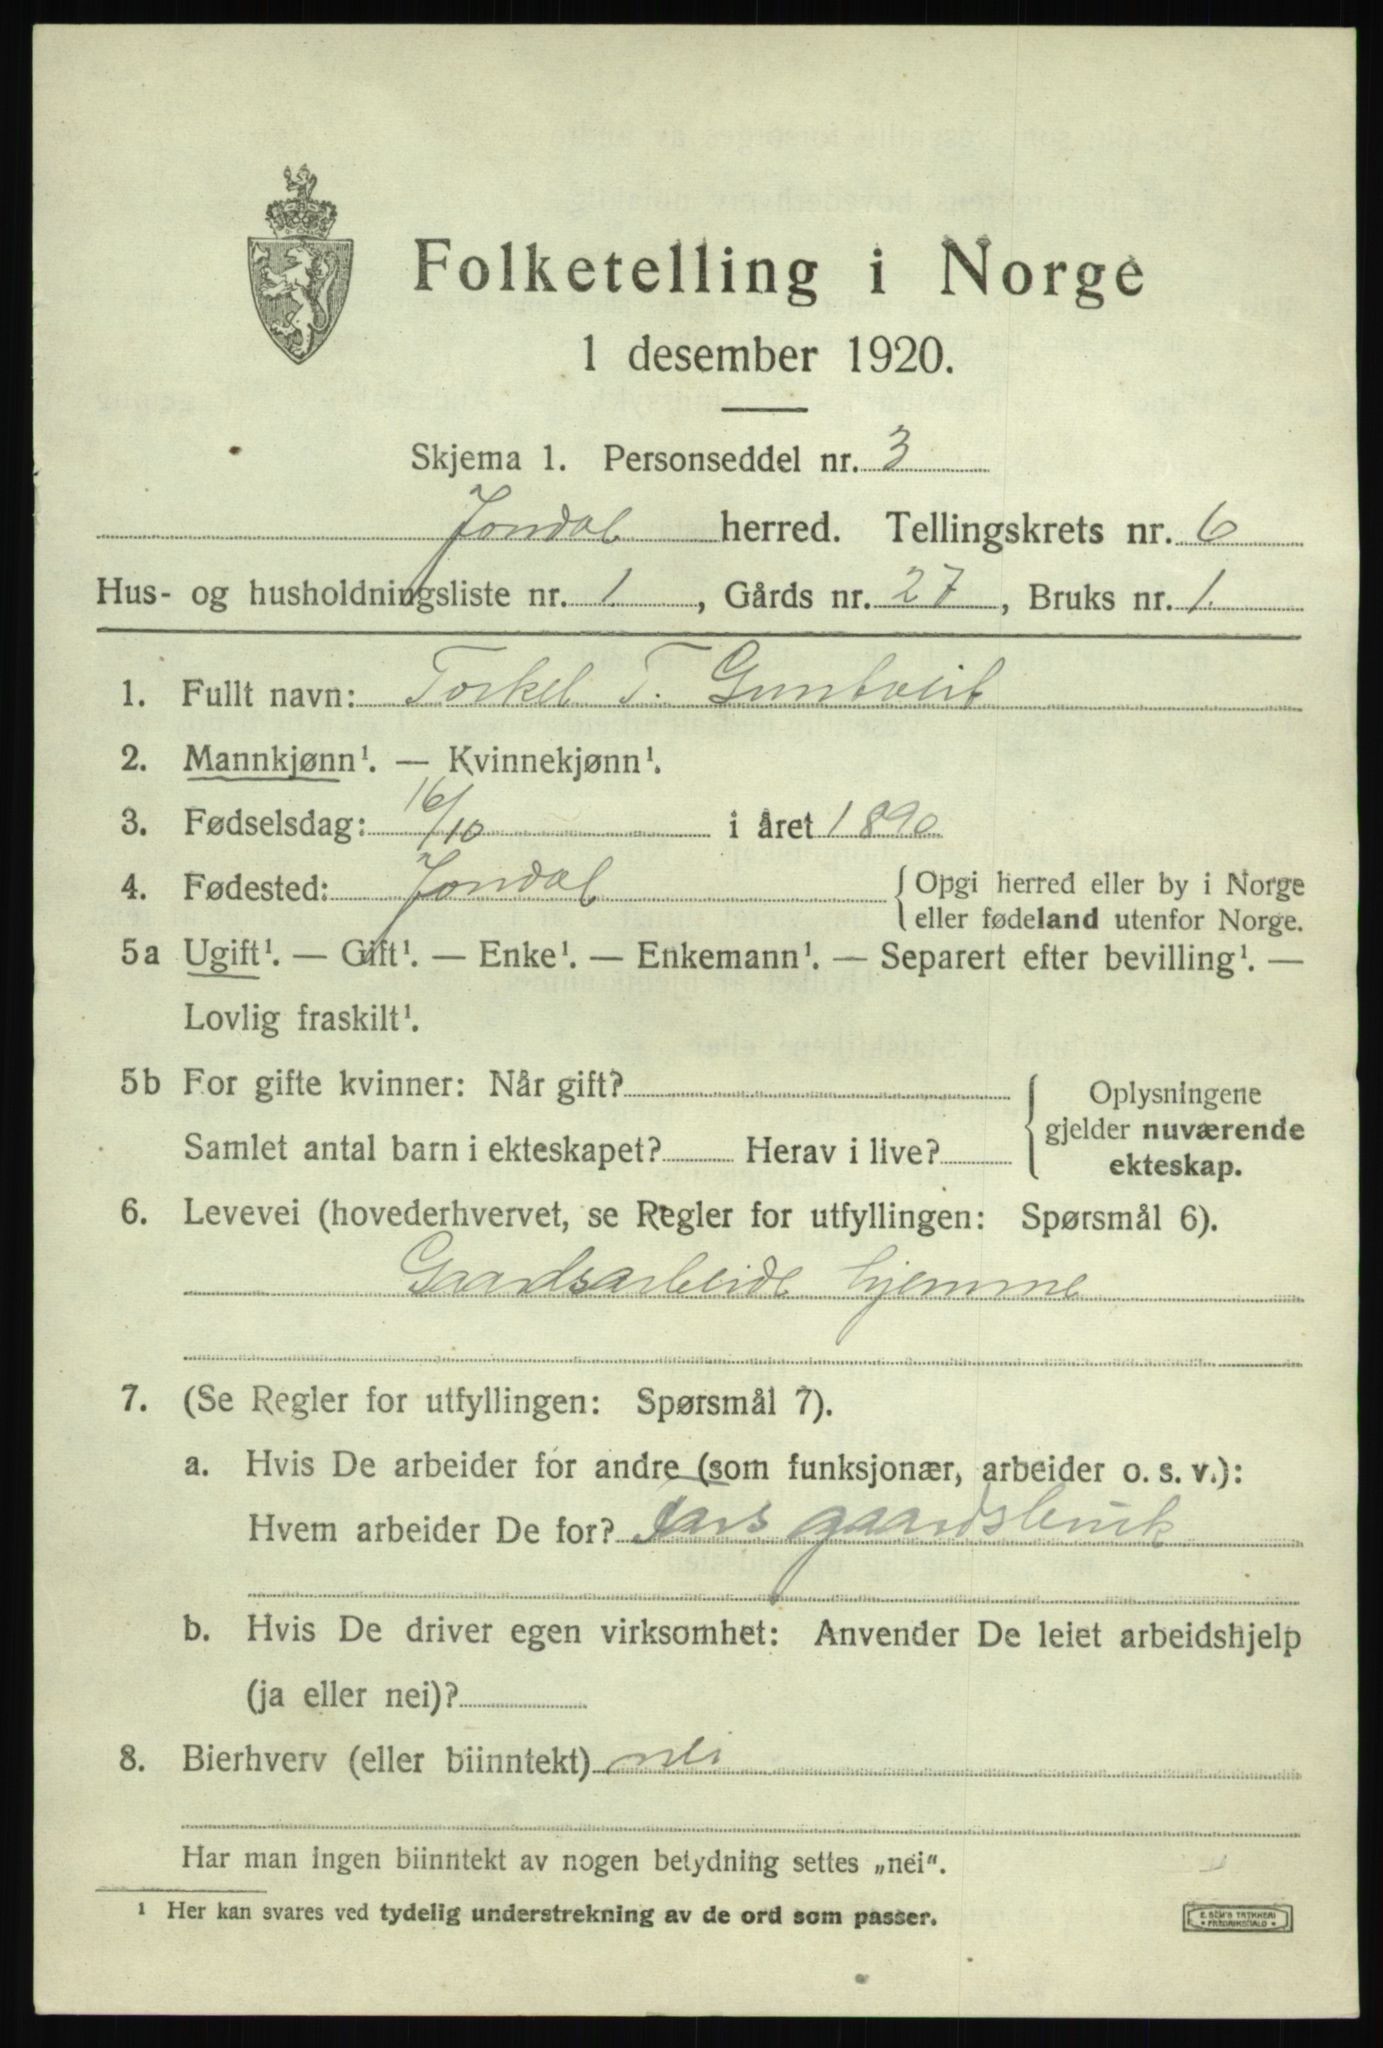 Folketelling i Norge
1 desember 1920.
Skjema 1. Personseddel nr. 3
Jondal herred. Tellingskrets nr. 6
Hus- og husholdningsliste nr. 1, Gårds nr. 27, Bruks nr. 1.
1. Fullt navn: Torkel T. Guntveit
2. Mannkjønn¹. — Kvinnekjønn¹.
3. Fødselsdag: 16/10 i året 1890
4. Fødested: Jondal { Opgi herred eller by i Norge
eller fødeland utenfor Norge.
5a Ugift¹. — Gift¹. — Enke¹. — Enkemann¹. — Separert efter bevilling¹. —
Lovlig fraskilt¹.
5b For gifte kvinner: Når gift? { Oplysningene
gjelder nuværende
Samlet antal barn i ekteskapet? Herav i live? ekteskap.
6. Levevei (hovederhvervet, se Regler for utfyllingen: Spørsmål 6).
Gaardsarbeide hjemme
7. (Se Regler for utfyllingen: Spørsmål 7).
a. Hvis De arbeider for andre (som funksjonær, arbeider o. s. v.):
Hvem arbeider De for? Fars gaardsbruk
b. Hvis De driver egen virksomhet: Anvender De leiet arbeidshjelp
(ja eller nei)?
8. Bierhverv (eller biinntekt) nei
Har man ingen biinntekt av nogen betydning settes „nei“.
¹ Her kan svares ved tydelig understrekning av de ord som passer.
E. SEM'S TRYKKERI
FREDRIKSHALD